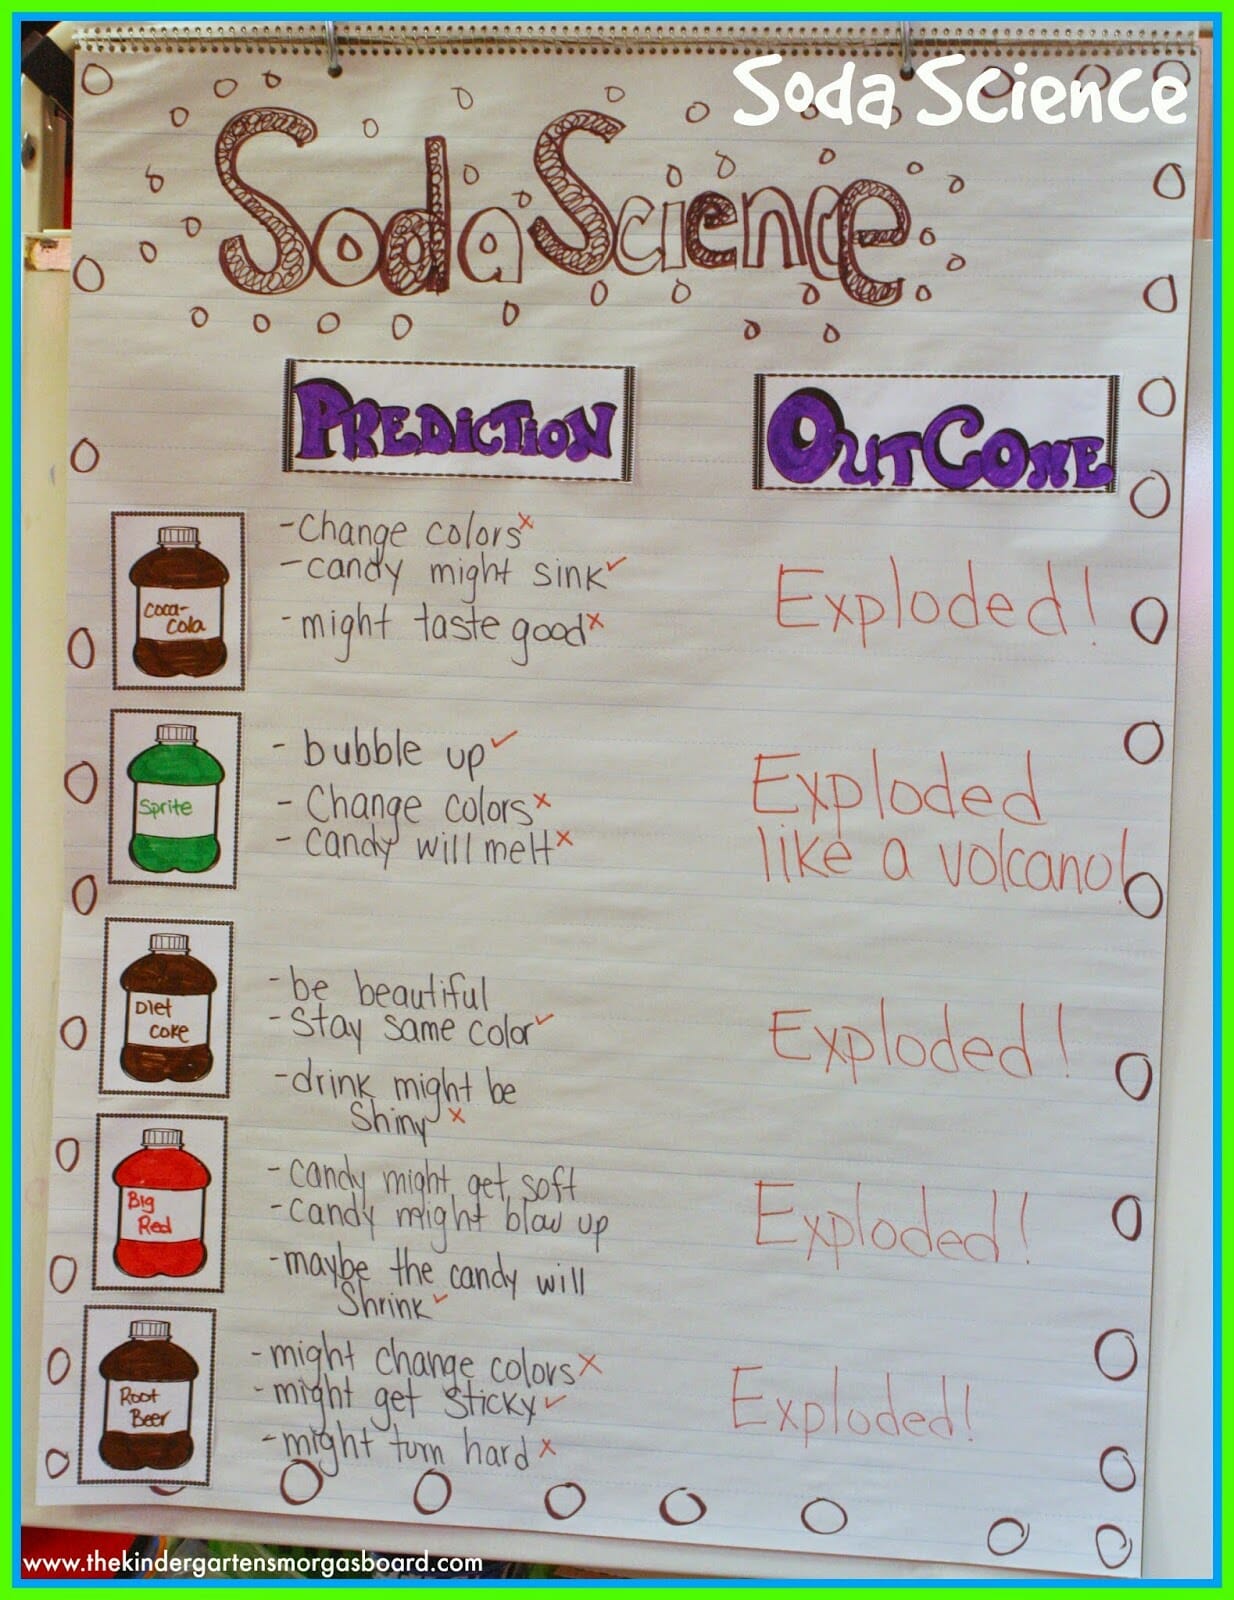 Soda Science
Soda Science
PREDICTION
OUTCOME
Coca-
Cola
-Change colors x
-candy might sink ✓
-might taste good x
Exploded!
Sprite
- bubble up ✓
- Change colors x
- candy will melt x
Exploded
like a volcano!
Diet
coke
-be beautiful
-Stay same color ✓
-drink might be
Shiny x
Exploded!
Big
Red
-candy might get soft
-candy might blow up
-maybe the candy will
Shrink ✓
Exploded!
Root
Beer
-might change colors x
-might get sticky ✓
-might turn hard x
Exploded!
www.thekindergartensmorgasboard.com